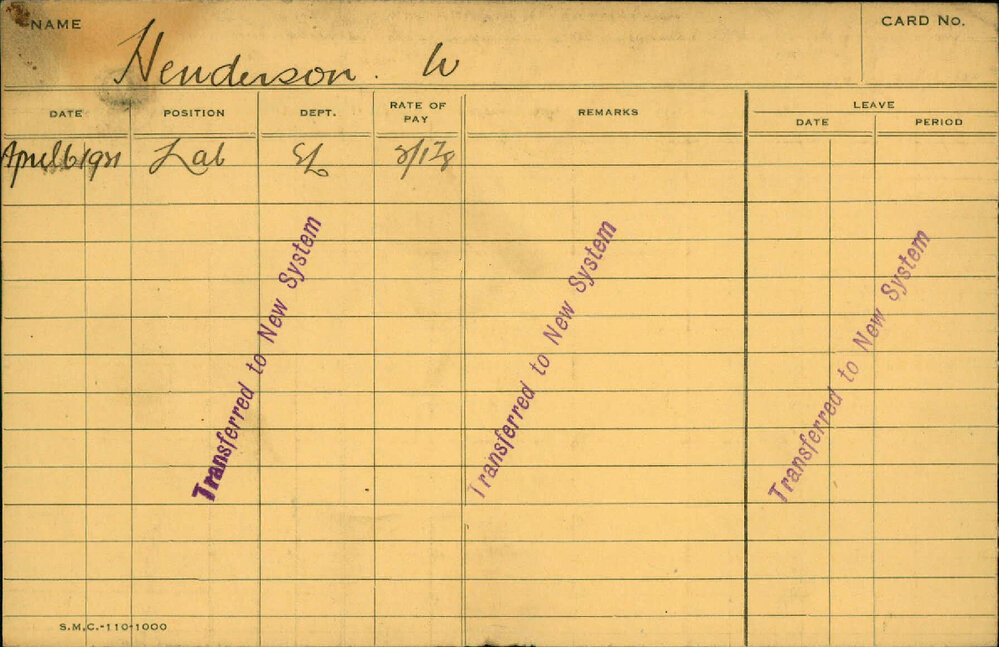 NAME
CARD No.
Henderson. W
DATE POSITION DEPT. RATE OF PAY REMARKS LEAVE
DATE PERIOD
April 6 1921 Lab EL
Transferred to New System
Transferred to New System
Transferred to New System
S.M.C.-110-1000